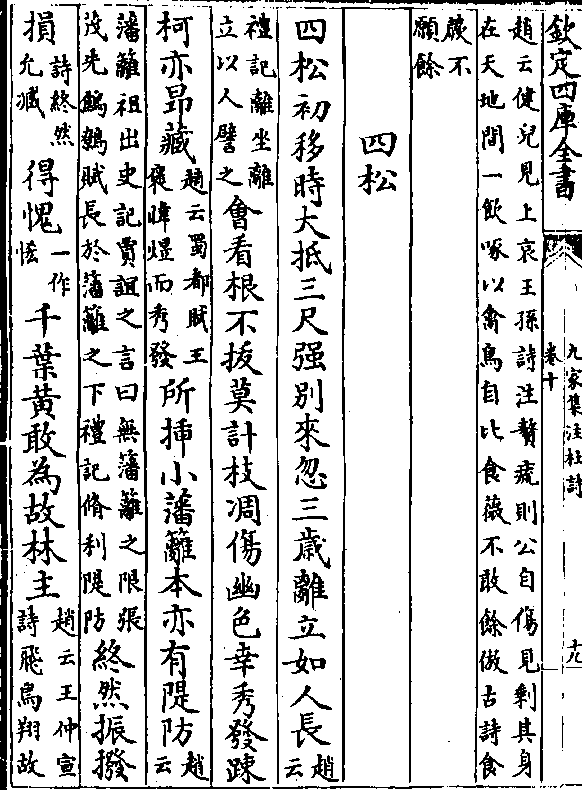 欽定四庫全書
九家集注杜詩
卷十
十九
趙云健兒見上哀王孫詩注贅疣則公自傷見剩其身
在天地間一飲啄以禽鳥自比食薇不敢餘倣古詩食
蕨不
願餘
四松
四松初移時大抵三尺强別來忽三歲離立如人長趙云
禮記離坐離
立以人譬之會看根不拔莫計枝凋傷幽色幸秀發踈
柯亦昻藏趙云蜀都賦王
襃暐煜而秀發所揷小藩籬本亦有隄防趙云
藩籬祖出史記賈誼之言曰無藩籬之限張
茂先鷦鷯賦長於藩籬之下禮記脩利隄防終然振撥
損詩終然
允臧得愧一作
恡千葉黃敢為故林主趙云王仲宣
詩飛鳥翔故